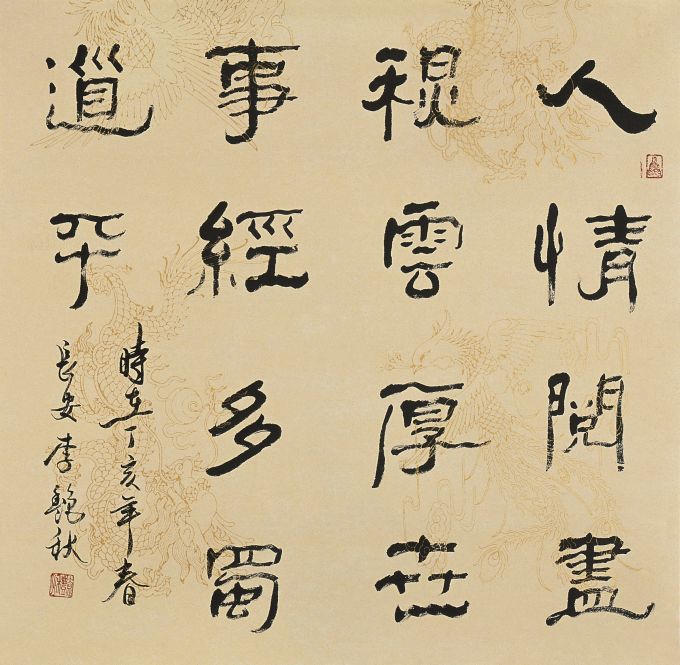 人情閱盡
穐雲厚世
事經多蜀
道平
時在丁亥年春
長安李秋